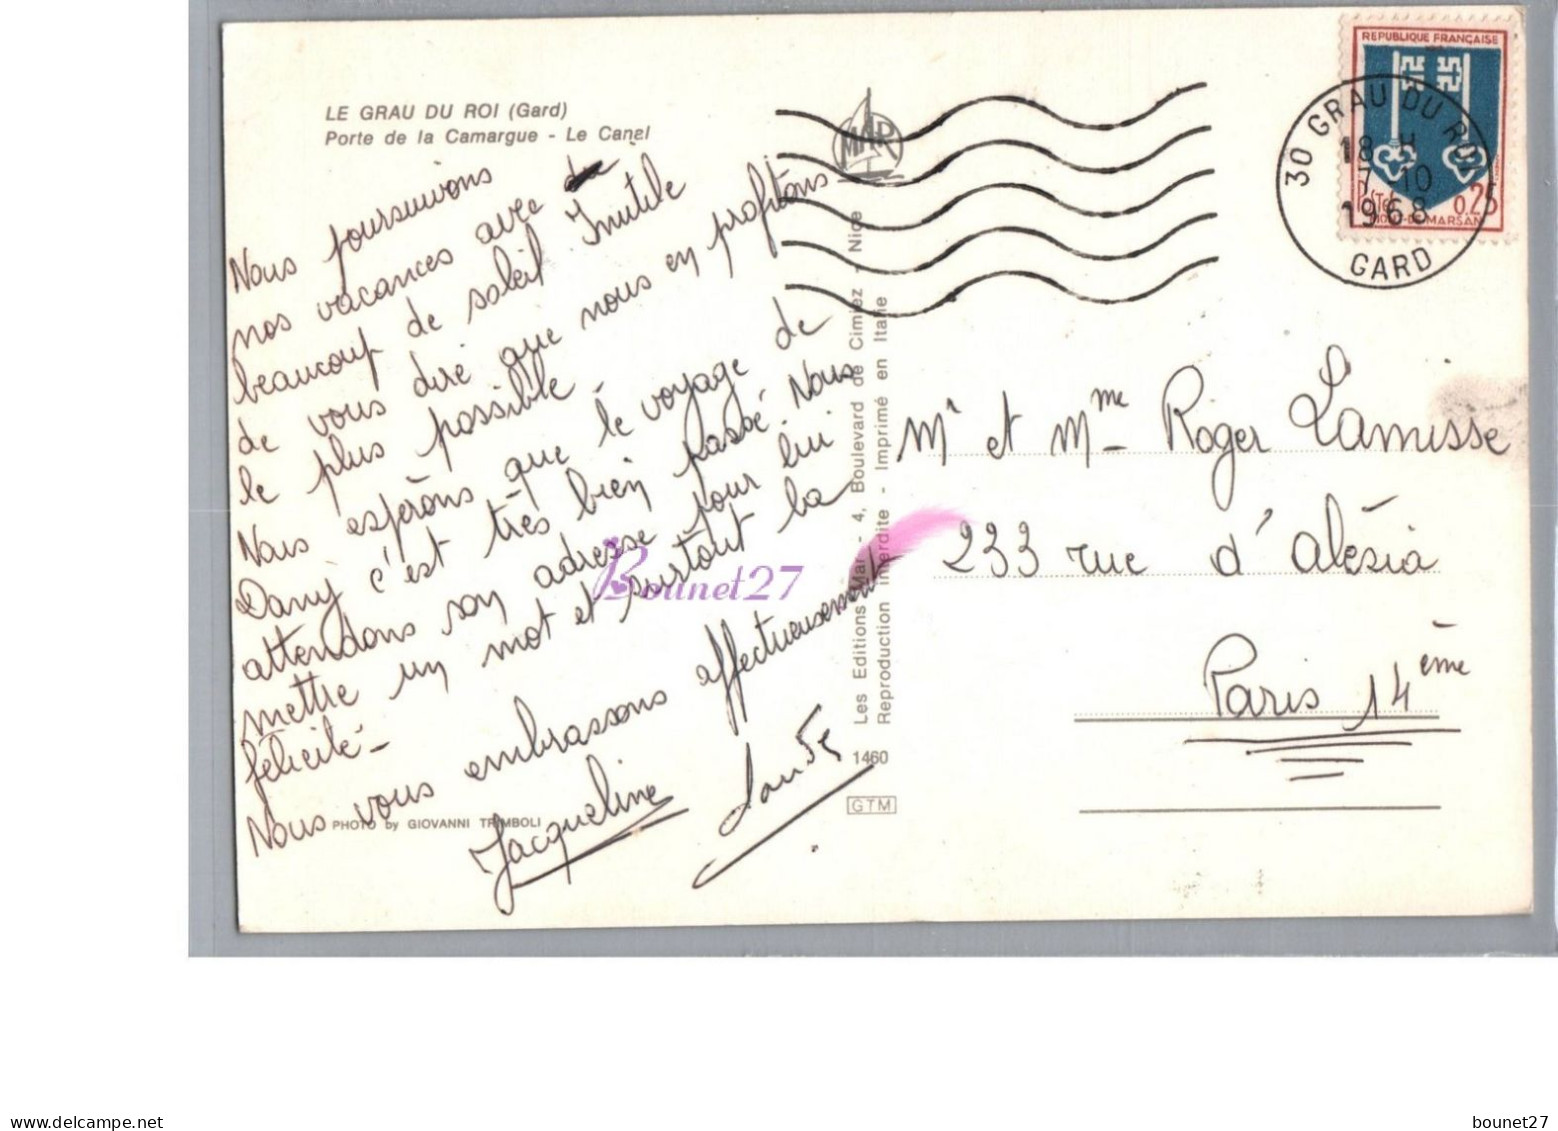 LE GRAU DU ROI (Gard)
Porte de la Camargue - Le Canal
Nous poursuivons
nos vacances avec de
beaucoup de soleil. Inutile
de vous dire que nous en profitons
le plus possible -
Nous espérons que le voyage de
Dany c'est très bien passé. Nous
attendons son adresse pour lui
mettre un mot et surtout la
félicité -
Nous vous embrassons affectueusement
Jacqueline
PHOTO by GIOVANNI TRIMBOLI
MAR
Les Editions Mar - 4, Boulevard de Cimiez - Nice
Reproduction interdite - Imprimé en Italie
1460
GTM
REPUBLIQUE FRANÇAISE
POSTES 0,25
MONT-DE-MARSAN
30 GRAU DU ROI
18 H
7 10
1968
GARD
Mr et Mme Roger Lamisse
233 rue d'alésia
Paris 14ème
Bounet27
Delcampe.net
bounet27